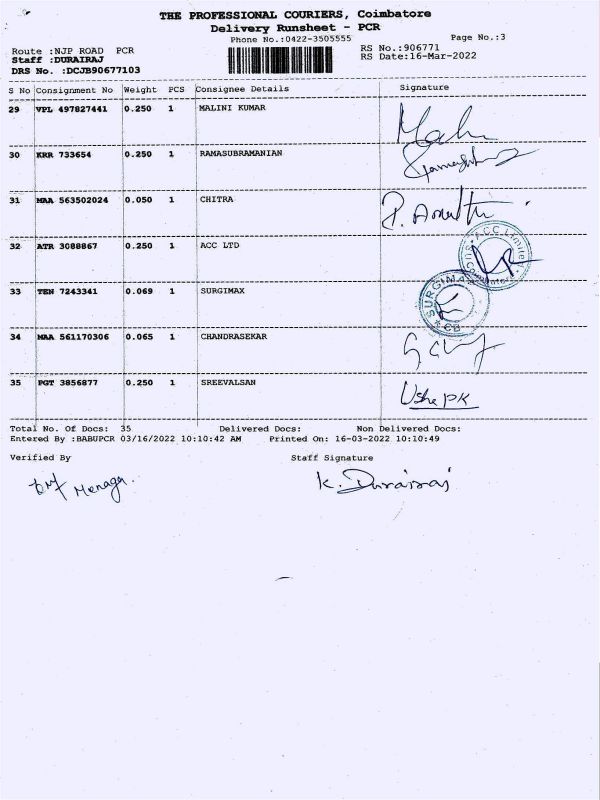 THE PROFESSIONAL COURIERS, Coimbatore
Delivery Runsheet - PCR
Phone No.:0422-3505555
Page No.:3
Route :NJP ROAD PCR
RS No.:906771
Staff :DURAIRAJ
RS Date:16-Mar-2022
DRS No. :DCJB90677103
S No Consignment No Weight PCS Consignee Details Signature
29 VPL 497827441 0.250 1 MALINI KUMAR
30 KRR 733654 0.250 1 RAMASUBRAMANIAN
31 MAA 563502024 0.050 1 CHITRA
32 ATR 3088867 0.250 1 ACC LTD
ACC Limited
33 TEN 7243341 0.069 1 SURGIMAX
SURGIMAX
CB
34 MAA 561170306 0.065 1 CHANDRASEKAR
35 PGT 3856877 0.250 1 SREEVALSAN Usha PK
Total No. Of Docs: 35 Delivered Docs: Non Delivered Docs:
Entered By :BABUPCR 03/16/2022 10:10:42 AM Printed On: 16-03-2022 10:10:49
Verified By Staff Signature
Menaga. K. Durairaj